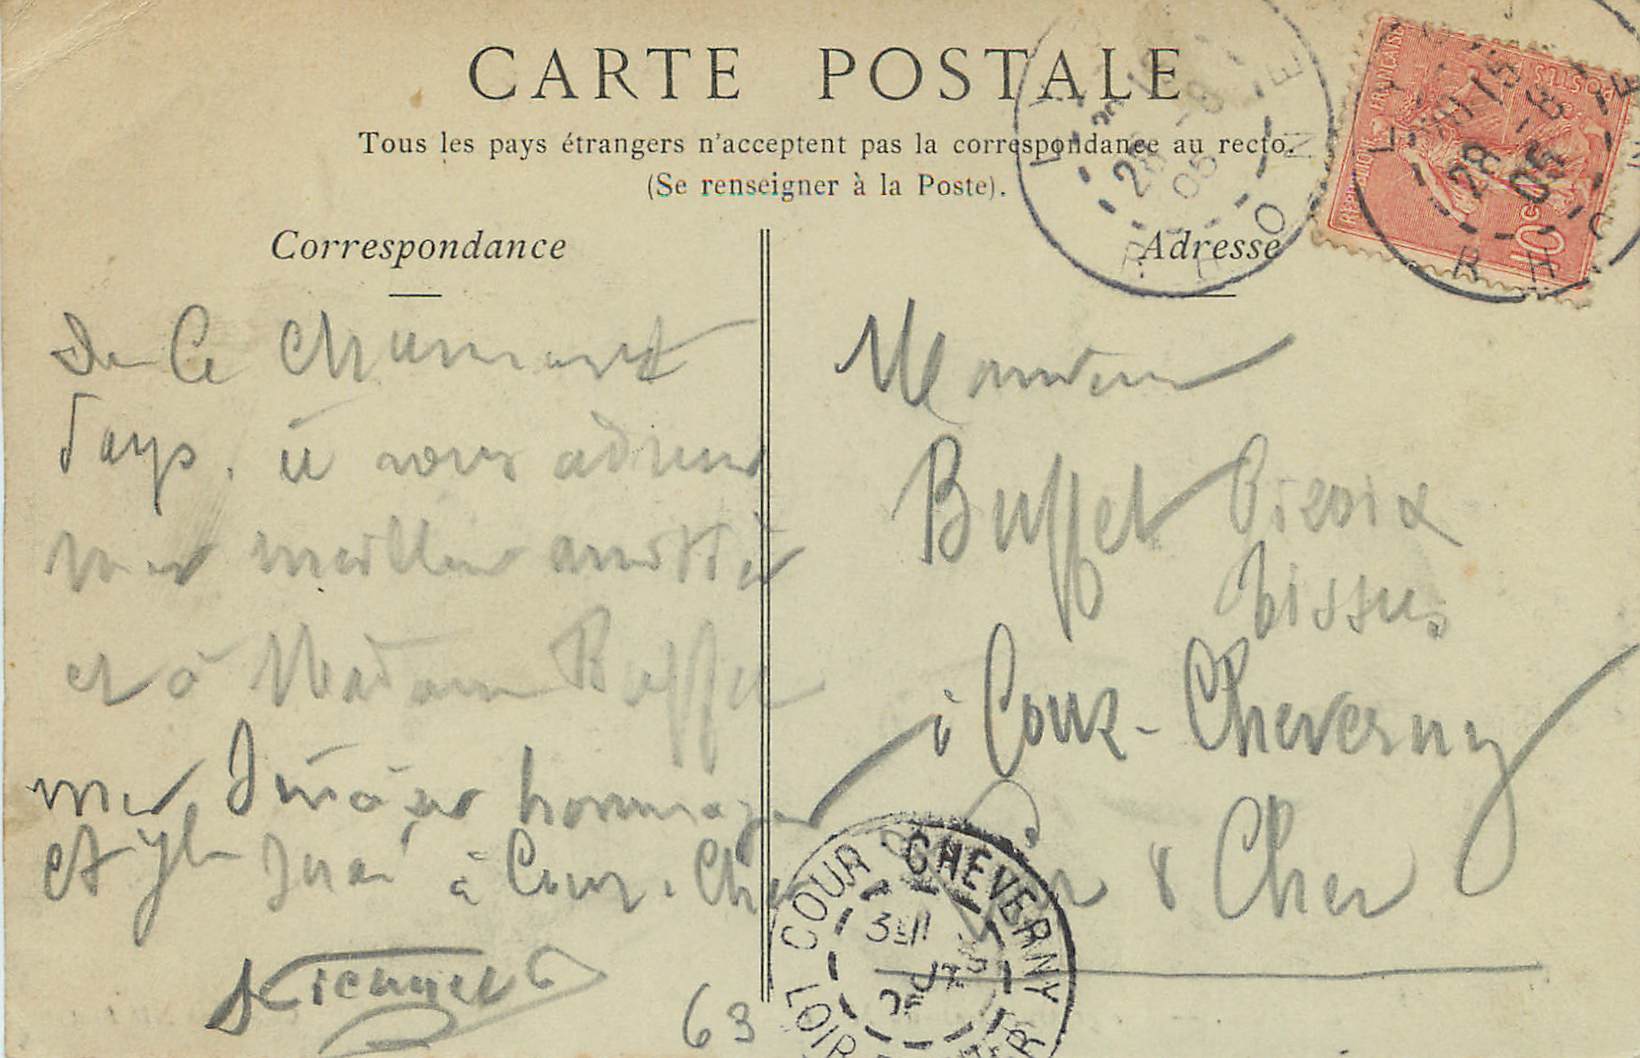 CARTE POSTALE
Tous les pays étrangers n'acceptent pas la correspondance au recto.
(Se renseigner à la Poste).
Correspondance
De ce charmant
Pays, je vous adresse
mes meilleures amitiés
et à Madame Buffet
mes sincères hommages
et à Cour-Che
63
Adresse
Monsieur
Buffet
Tissus
à Cour-Cheverny
Loir & Cher
REPUBLIQUE FRANÇAISE
POSTES
10c
28 -8 05
RHONE
28 -8 05
RHONE
COUR CHEVERNY
LOIR